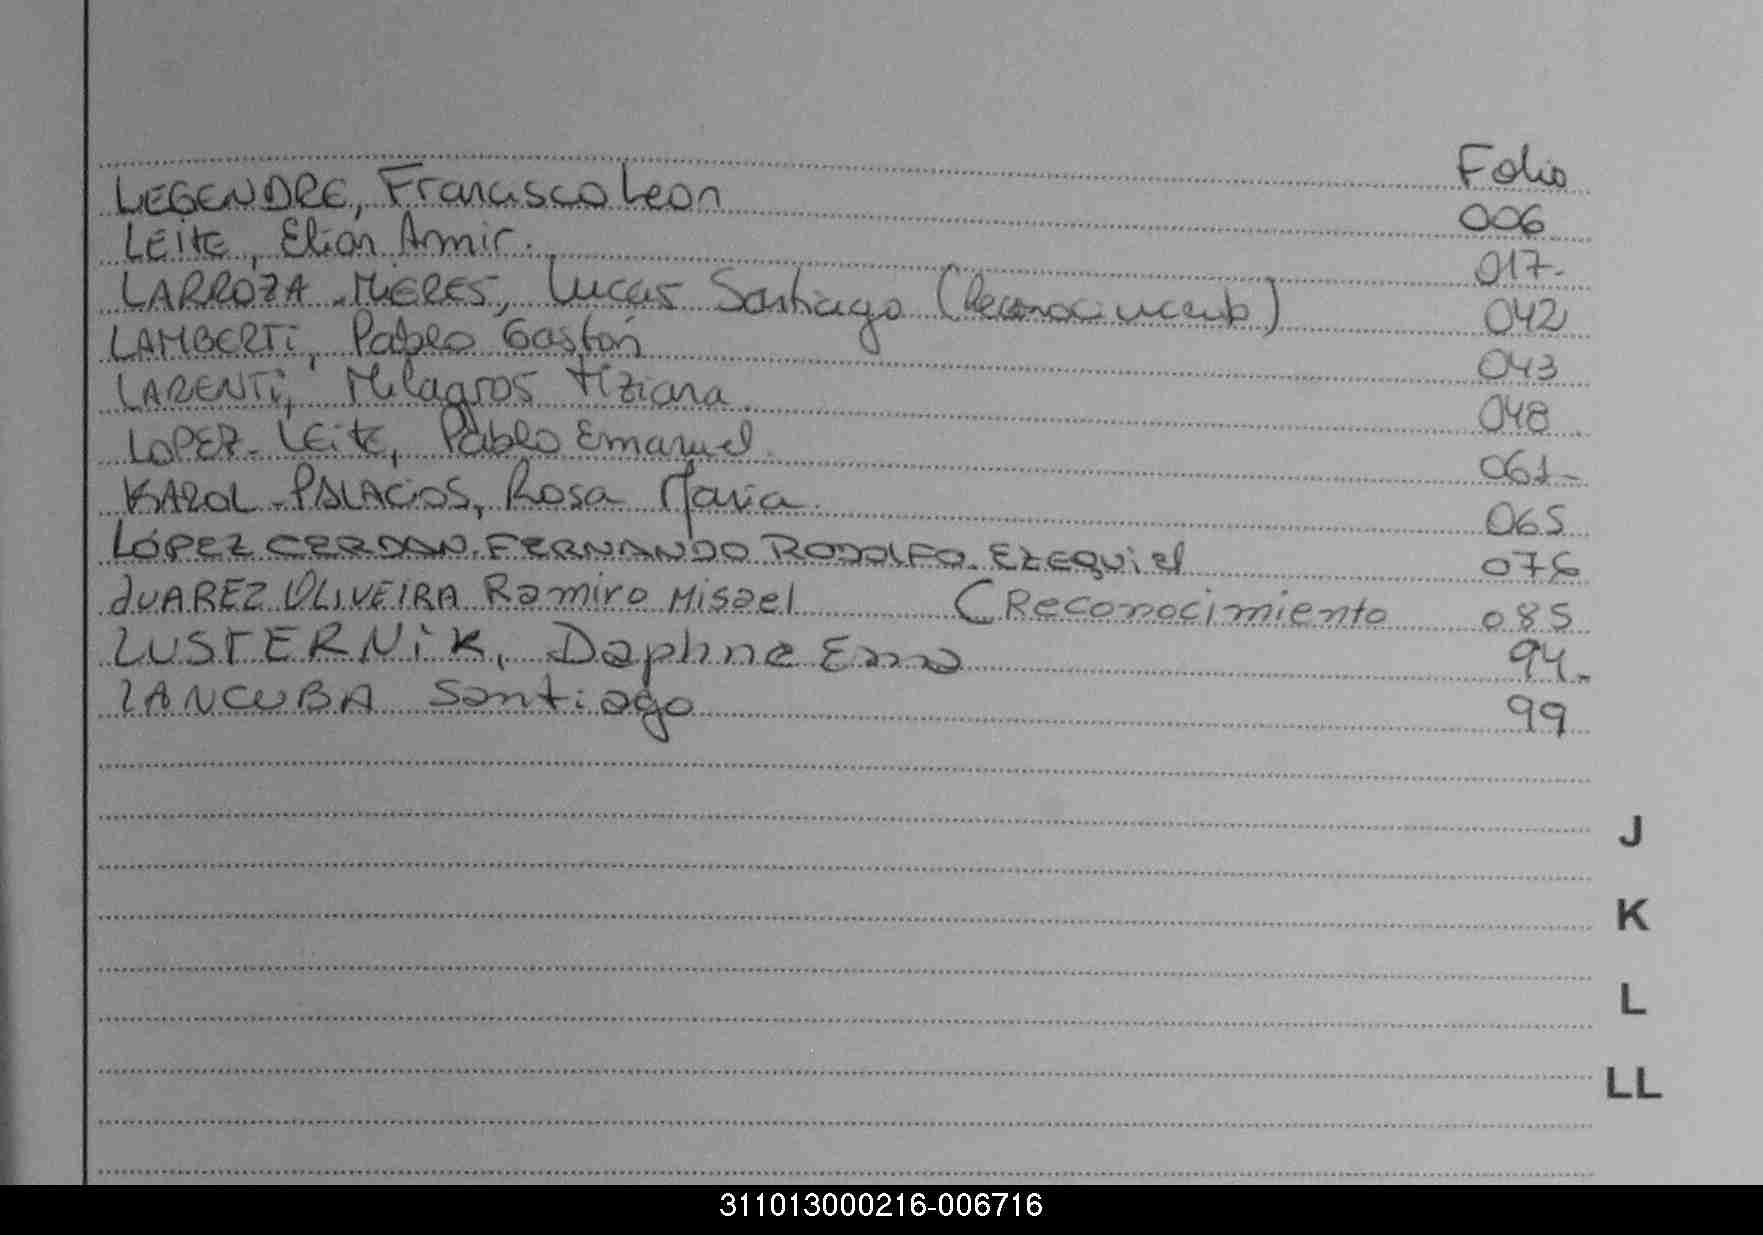 Folio
LEGENDRE, Francisco Leon 006
LEITE, Elian Amir. 017-
LARROZA - MIERES, Lucas Santiago (Reconocimiento) 042
LAMBERTI, Pablo Gastón 043
LARENTI, Milagros Tiziana 048
LOPEZ - LEITE, Pablo Emanuel. 061-
KAROL - PALACIOS, Rosa Maria. 065
LÓPEZ CERDAN. FERNANDO RODOLFO. EZEQUIEL 076
JUAREZ OLIVEIRA Ramiro Misael (Reconocimiento 085
LUSTERNIK, Daphne Emma 94.
LANCUBA Santiago 99
J
K
L
LL
311013000216-006716